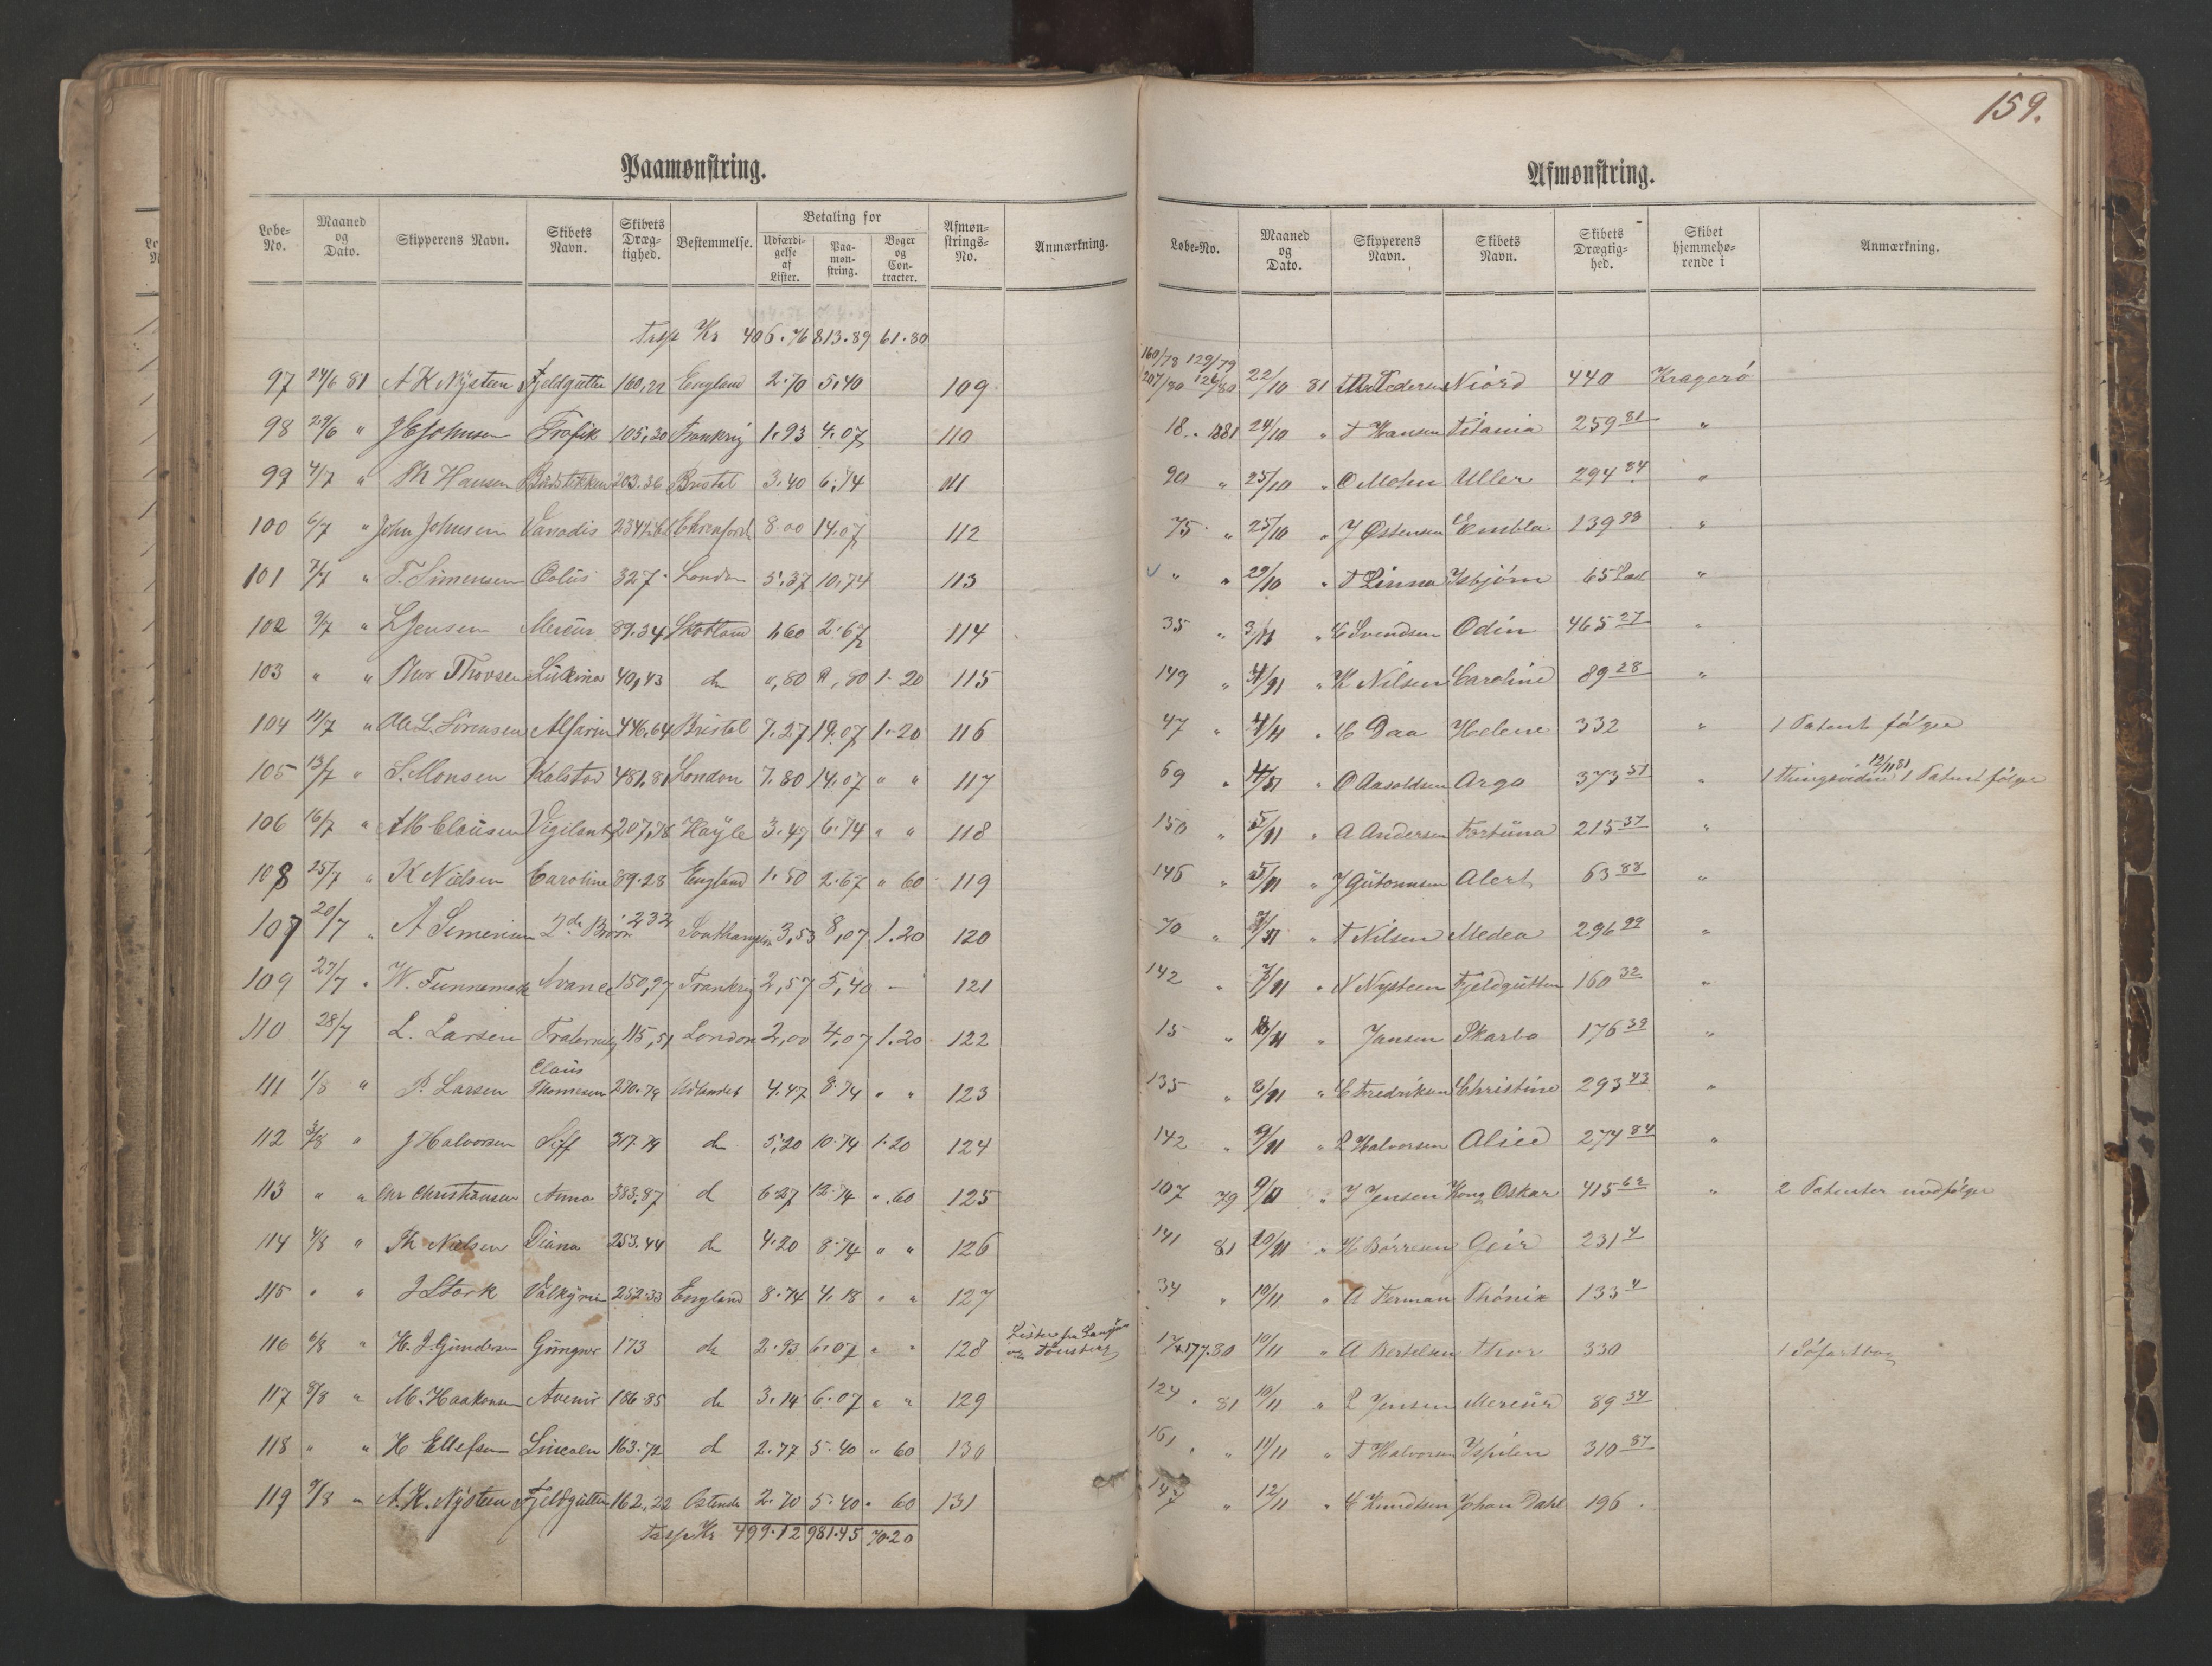 159.
Paamønstring.
Løbe-No. Maaned og Dato. Skipperens Navn. Skibets Navn. Skibets Dræg-tighed. Bestemmelse. Betaling for Udfærdi-gelse af Lister. Paa-møn-string. Bøger og Con-tracter. Afmøn-strings-No. Anmærkning.
Kr 406.76 813.89 61.80
97 24/6 81 A K Nÿsteen Fjeldgutten 160,22 England 2.70 5.40 109
98 29/6 " Johnsen Trafik 105,30 Frankrig 1.93 4.07 110
99 4/7 " Th Hansen 203.36 Bristol 3.40 6.74 111
100 6/7 " John Johnsen Vanadis 8.00 14.07 112
101 7/7 " T. Simensen 327 London 5.37 10,74 113
102 9/7 " L Jensen Mercur 89.34 Skotland 1,60 2.67 114
103 " " Thor Thorsen 40,43 do ",80 1.20 115
104 11/7 " Ole L. Sörensen Alfarin 446,64 Bristol 7.27 14.07 1.20 116
105 13/7 " S. Monsen Kalstad 481,81 London 7.80 14.07 " " 117
106 16/7 " Clausen Vigilant 207,78 Hayle 3.47 6.74 " " 118
108 25/7 " K Nielsen Caroline 89.28 England 1.50 2.67 " 60 119
107 20/7 " A 2de Brödre 232 Southampton 3,53 8,07 1.20 120
109 27/7 " W. Funnemark Avance 150,97 Frankrig 2,57 5,40 — 121
110 28/7 L. Larsen Fraternity 115,51 London 2,00 4,07 1.20 122
111 1/8 " P. Larsen Claus Thomesen 270.79 Udlandet 4.47 8.74 " " 123
112 3/8 " J Halvorsen Siff 317.79 do 5,20 10.74 1.20 124
113 " " Chr Christiansen Anna 383.87 d 6.27 12.74 ".60 125
114 4/8 " Th Nielsen Diana 253.44 do 4.20 8.74 " " 126
115 " " J Stork Valkÿrien 252.33 England 8.74 4.18 " " 127
116 6/8 " H. J. Gundersen Gungner 173 do 2.93 6.07 " " 128 Lister fra Langesund og Tönsberg
117 8/8 " M. Haakonsen Avenir 186.85 do 3.14 6.07 " " 129
118 " " H Ellefsen Lincoln 163.72 d 2.77 5.40 " 60 130
119 9/8 " A. K. Nÿsteen Fjeldgutten 162,22 Ostende 2.70 5.40 " 60 131
Kr 499.12 981.45 70.20
Afmønstring.
Løbe-No. Maaned og Dato. Skipperens Navn. Skibets Navn. Skibets Drægtig-hed. Skibet hjemmehø-rende i Anmærkning.
160/78 129/79
207/80 126/80 22/10 81 Pedersen Niord 440 Kragerö
18 . 1881 24/10 " T Hansen Titania 259 81 "
90 " 25/10 " O Mohn Uller 294 84 "
75 " 25/10 " J Østensen Embla 139 99 "
" " 29/10 " T Linna Isbjörn 65 Læst "
35 " 3/11 " C Svendsen Odin 465 27 "
149 " 4/11 " K Nilsen Caroline 89 28 "
47 " 4/11 " C Daa Helene 332 " 1 Patent fölger
69 " 4/11 " O Aasoldsen Argo 373 51 " 1 Thingsvidne 12/11 81 1 Patent fölger
150 " 5/11 " A Andersen Fortüna 215 37 "
146 " 5/11 " J Gütormsen Alert 63 88 "
70 " 7/11 " T Nilsen Medea 296 99 "
142 " 7/11 " N Nysteen Fjeldgütten 160 32 "
15 " 8/11 " Jansen Skarbo 176 39 "
135 " 8/11 " C Fredriksen Christine 293 43 "
142 " 9/11 " L Halvorsen Alice 274 84 "
107 79 9/11 " J Jensen Kong Oskar 415 62 " 2 Patenter medfölger
141 81 10/11 " H Börresen Geir 231 4
34 " 10/11 " A Ferman Phönix 133 4
177.80 10/11 " A Bertelsen Thor 330 1 Söfartbog
124 . 81 10/11 " L Jensen Mercür 89 34
161 . " 11/11 " T Halvorsen Ispilen 310 87
" 12/11 " C Knudsen Johan Dahl 196 .